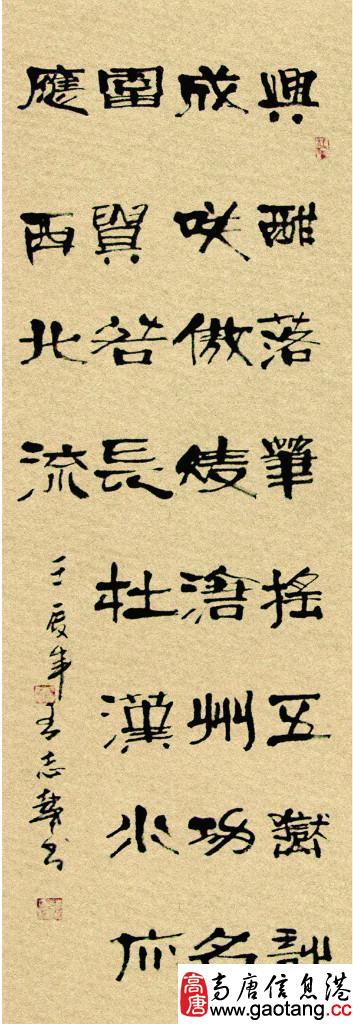 興酣落筆搖五嶽詩
成咲傲凌滄州功名
富貴若長在漢水亦
應西北流
壬辰年王志書
高唐
高唐信息港
www.gaotang.cc